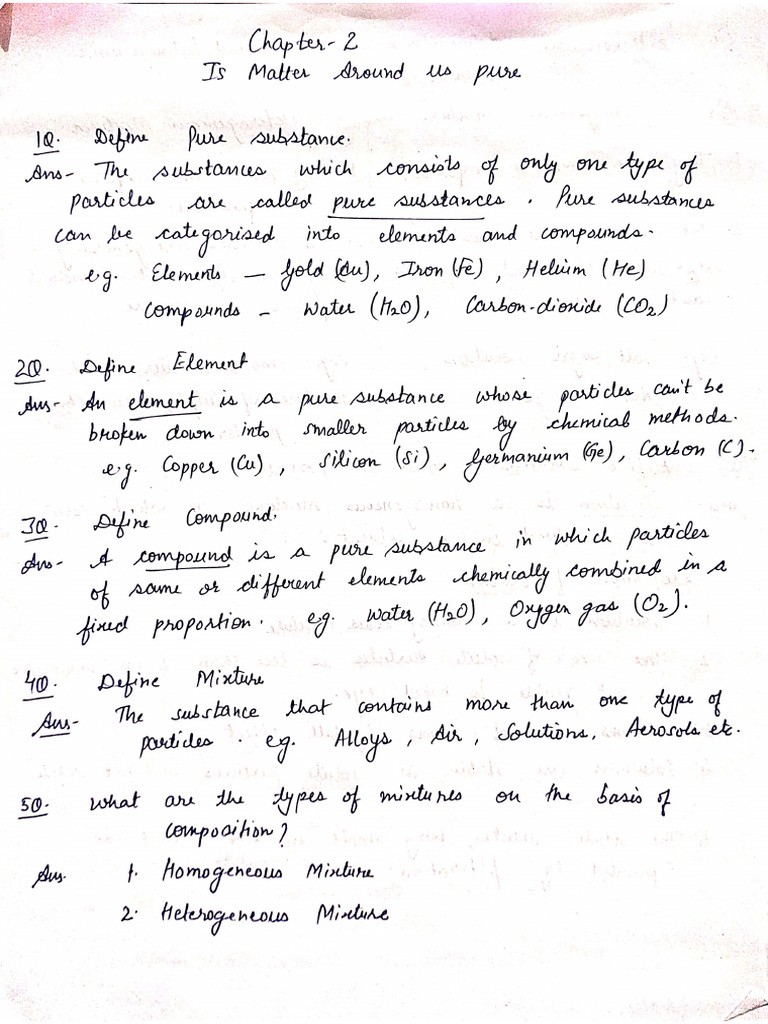 Chapter-2
Is Matter Around us pure
1Q. Define Pure substance.
Ans- The substances which consists of only one type of
particles are called pure substances. Pure substances
can be categorised into elements and compounds.
e.g. Elements — Gold (Au), Iron (Fe), Helium (He)
Compounds - Water (H2O), Carbon-dioxide (CO2)
2Q. Define Element
Ans- An element is a pure substance whose particles can't be
broken down into smaller particles by chemical methods.
e.g. Copper (Cu), Silicon (Si), Germanium (Ge), Carbon (C).
3Q. Define Compound.
Ans- A compound is a pure substance in which particles
of same or different elements chemically combined in a
fixed proportion. e.g. Water (H2O), Oxygen gas (O2).
4Q. Define Mixture
Ans- The substance that contains more than one type of
particles. e.g. Alloys, Air, Solutions, Aerosols etc.
5Q. What are the types of mixtures on the basis of
composition?
Ans. 1. Homogeneous Mixture
2. Heterogeneous Mixture